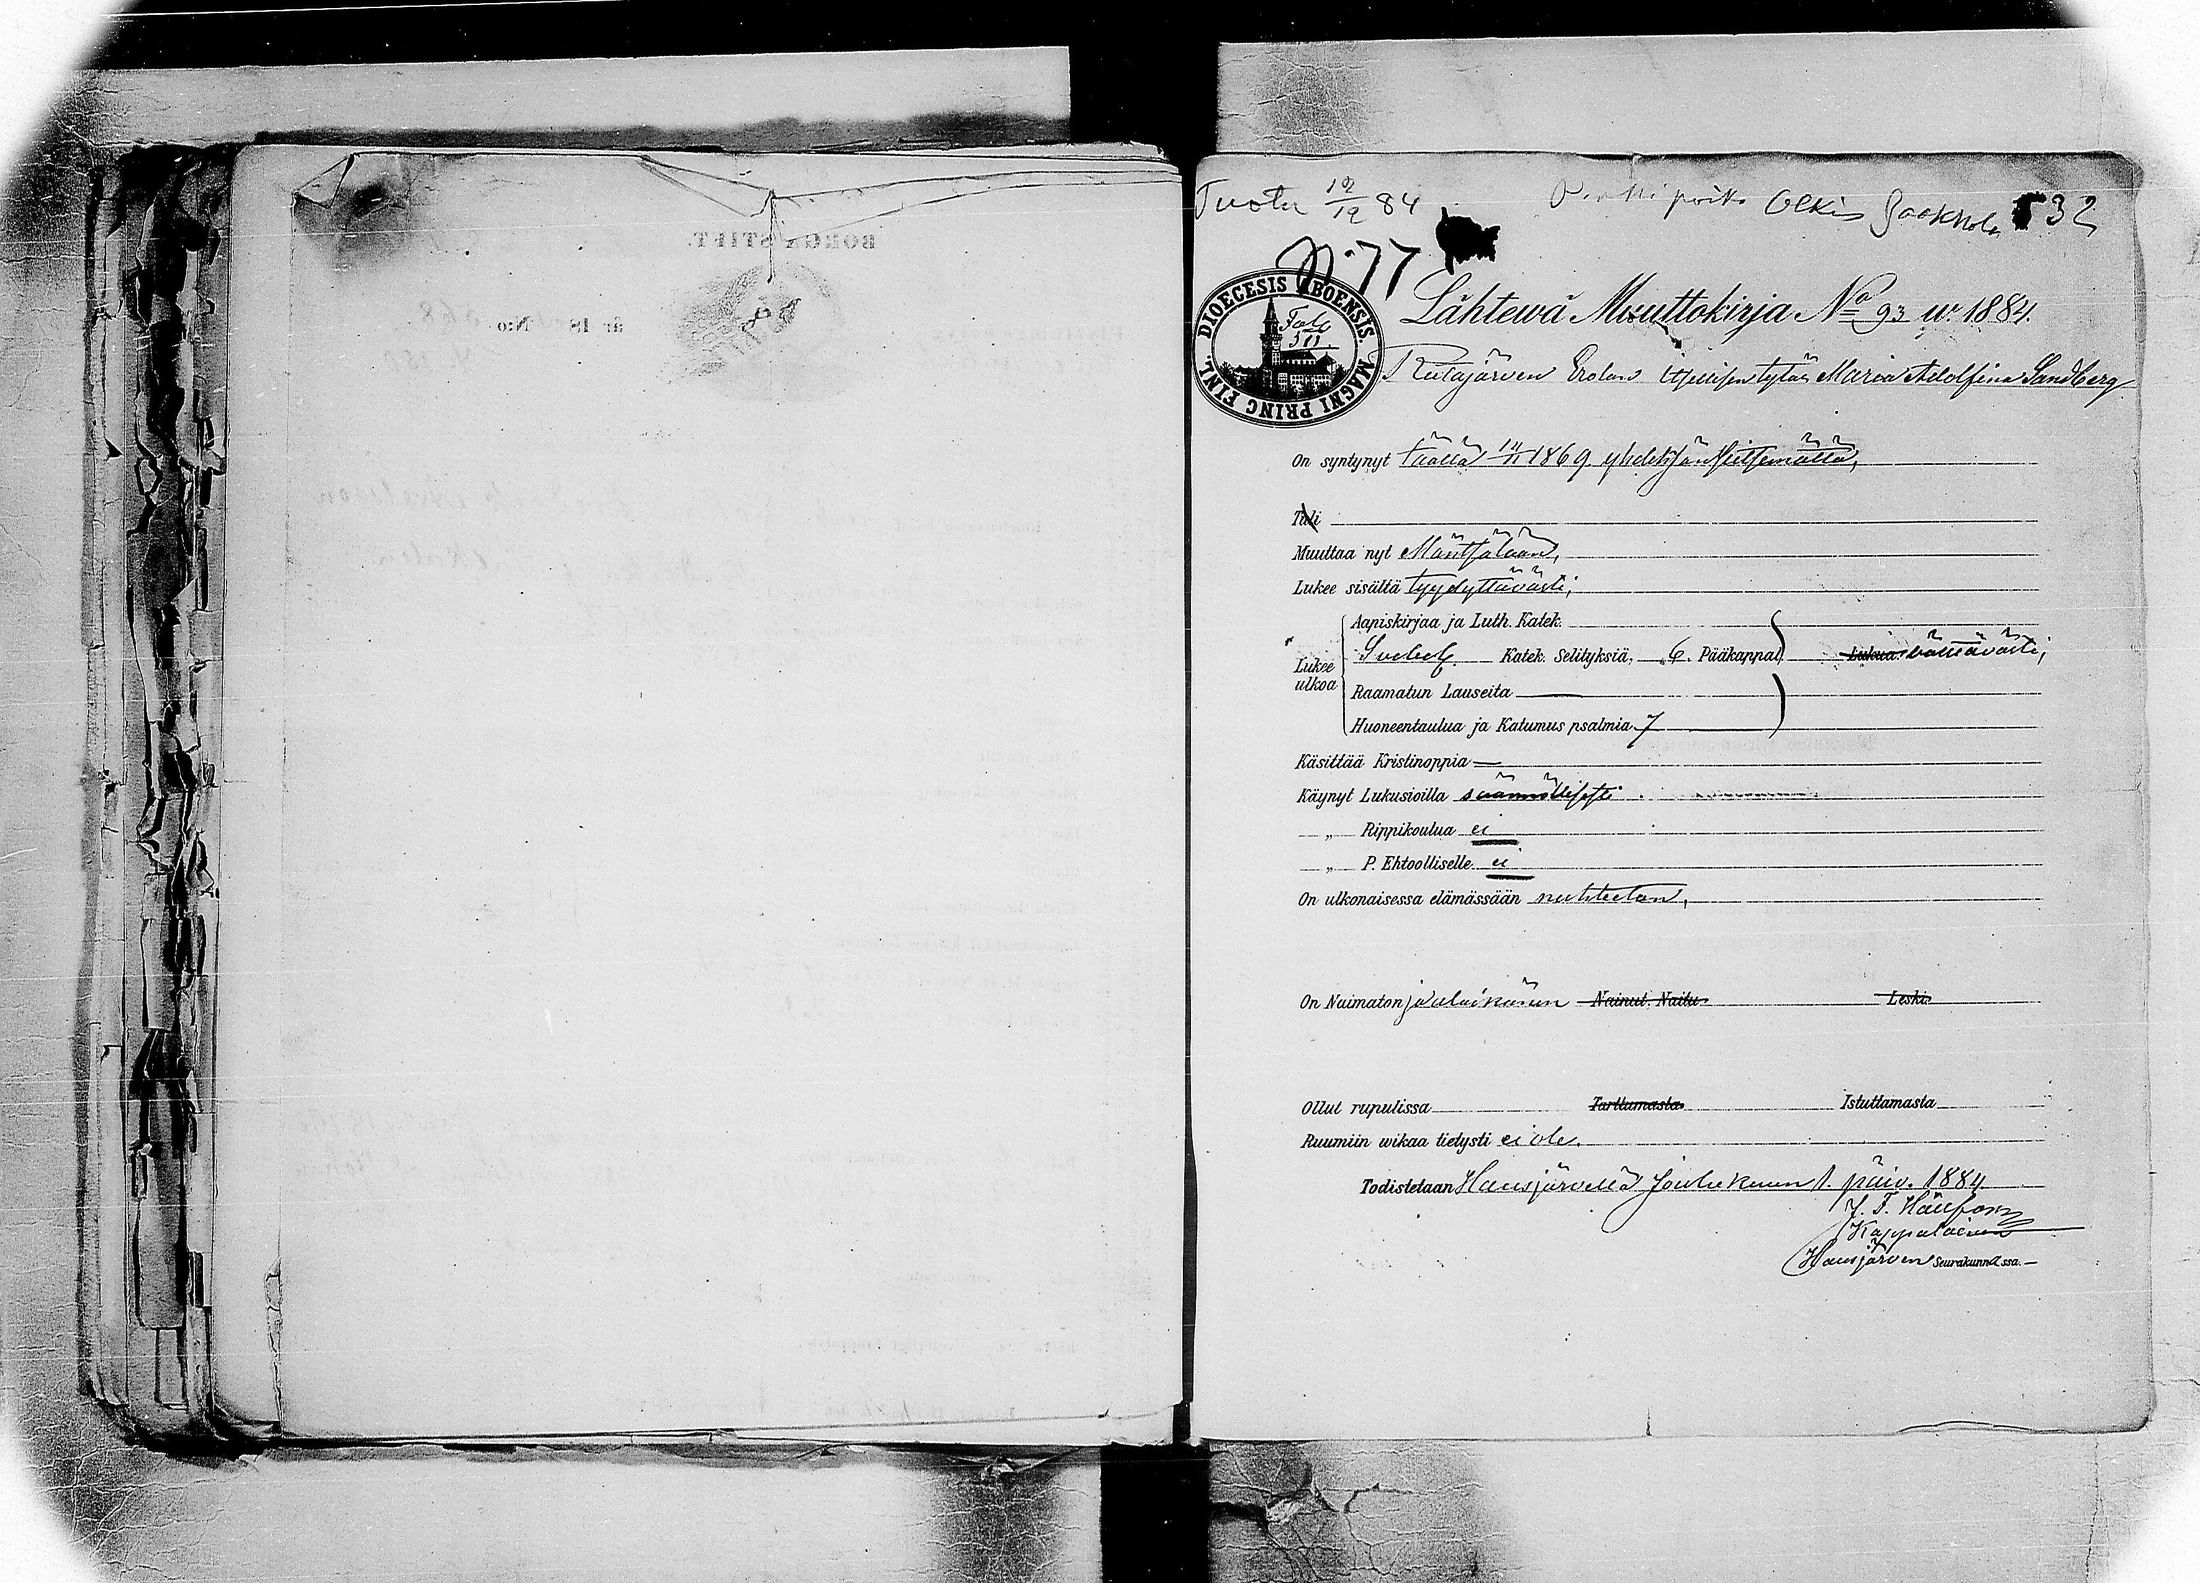 Tuotu 10/12 84 Olkis 532
N:o 77
DIOECESIS ABOENSIS. MAGNI PRINC FINL.
Lähtewä Muuttokirja No 93 w. 1884.
Erolan itsellisen tytär Maria Adolfina Sandberg
On syntynyt täällä 1869 yhdeksänseitsemättä,
Tuli
Muuttaa nyt Mäntsälään,
Lukee sisältä tyydyttävästi,
Aapiskirjaa ja Luth. Katek.
Lukee ulkoa
Svebel. Katek. Selityksiä, 6. Pääkappal. Lukua välttävästi,
Raamatun Lauseita —
Huoneentaulua ja Katumus psalmia 7
Käsittää Kristinoppia —
Käynyt Lukusioilla säännöllisesti
„ Rippikoulua ei
„ P. Ehtoolliselle ei
On ulkonaisessa elämässään nuhteeton,
On Naimaton ja alaikäinen Nainut Naitu Leski
Ollut rupulissa Tarttumasta Istuttamasta
Ruumiin wikaa tietysti ei ole.
Todistetaan Hausjärvellä Joulukuun 1. päiv. 1884
J. F. Hällfors
Kappalainen
Hausjärven Seurakunnassa.
BORGÅ STIFT.
år 18 N:o 68.